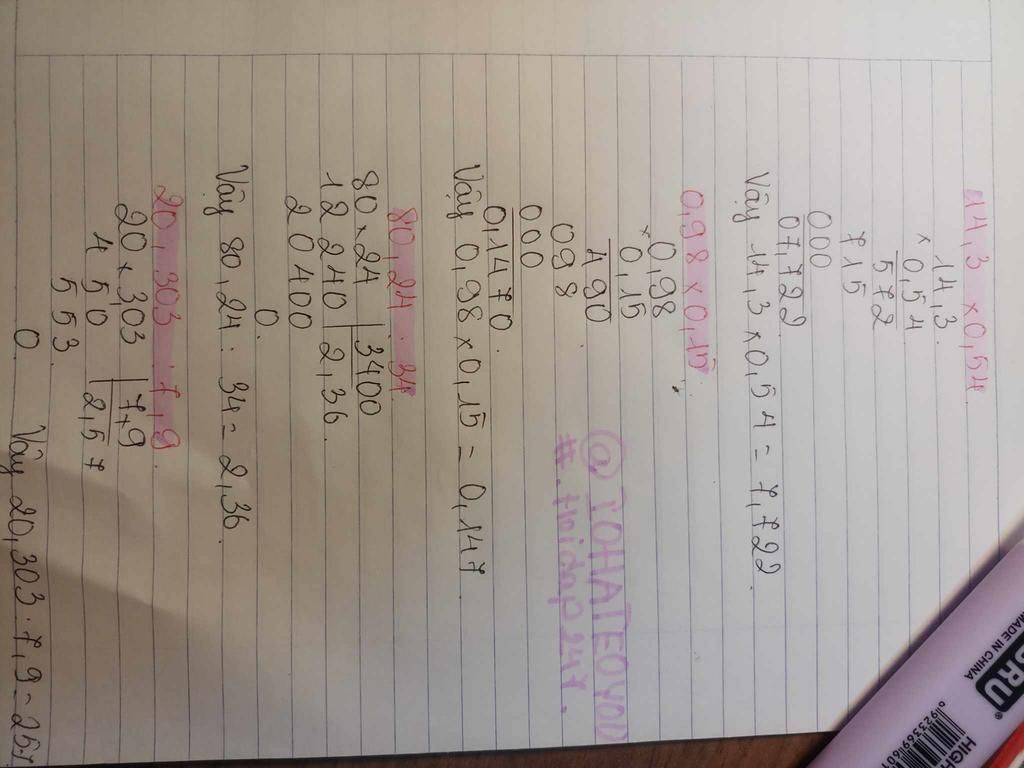 14,3 × 0,54
14,3
× 0,54
572
715
000
07,722
Vậy 14,3 × 0,54 = 7,722
0,98 × 0,15
0,98
× 0,15
490
098
000
0,1470
Vậy 0,98 × 0,15 = 0,147
@ TOHATEOYOU
#. hoidap247.
80,24 : 34
80,24 3400
12 240 2,36
2 0400
0
Vậy 80,24 : 34 = 2,36.
20,303 : 7,9
20,303 7,9
4 50 2,57
553
0
Vậy 20,303 : 7,9 = 257
MADE IN CHINA